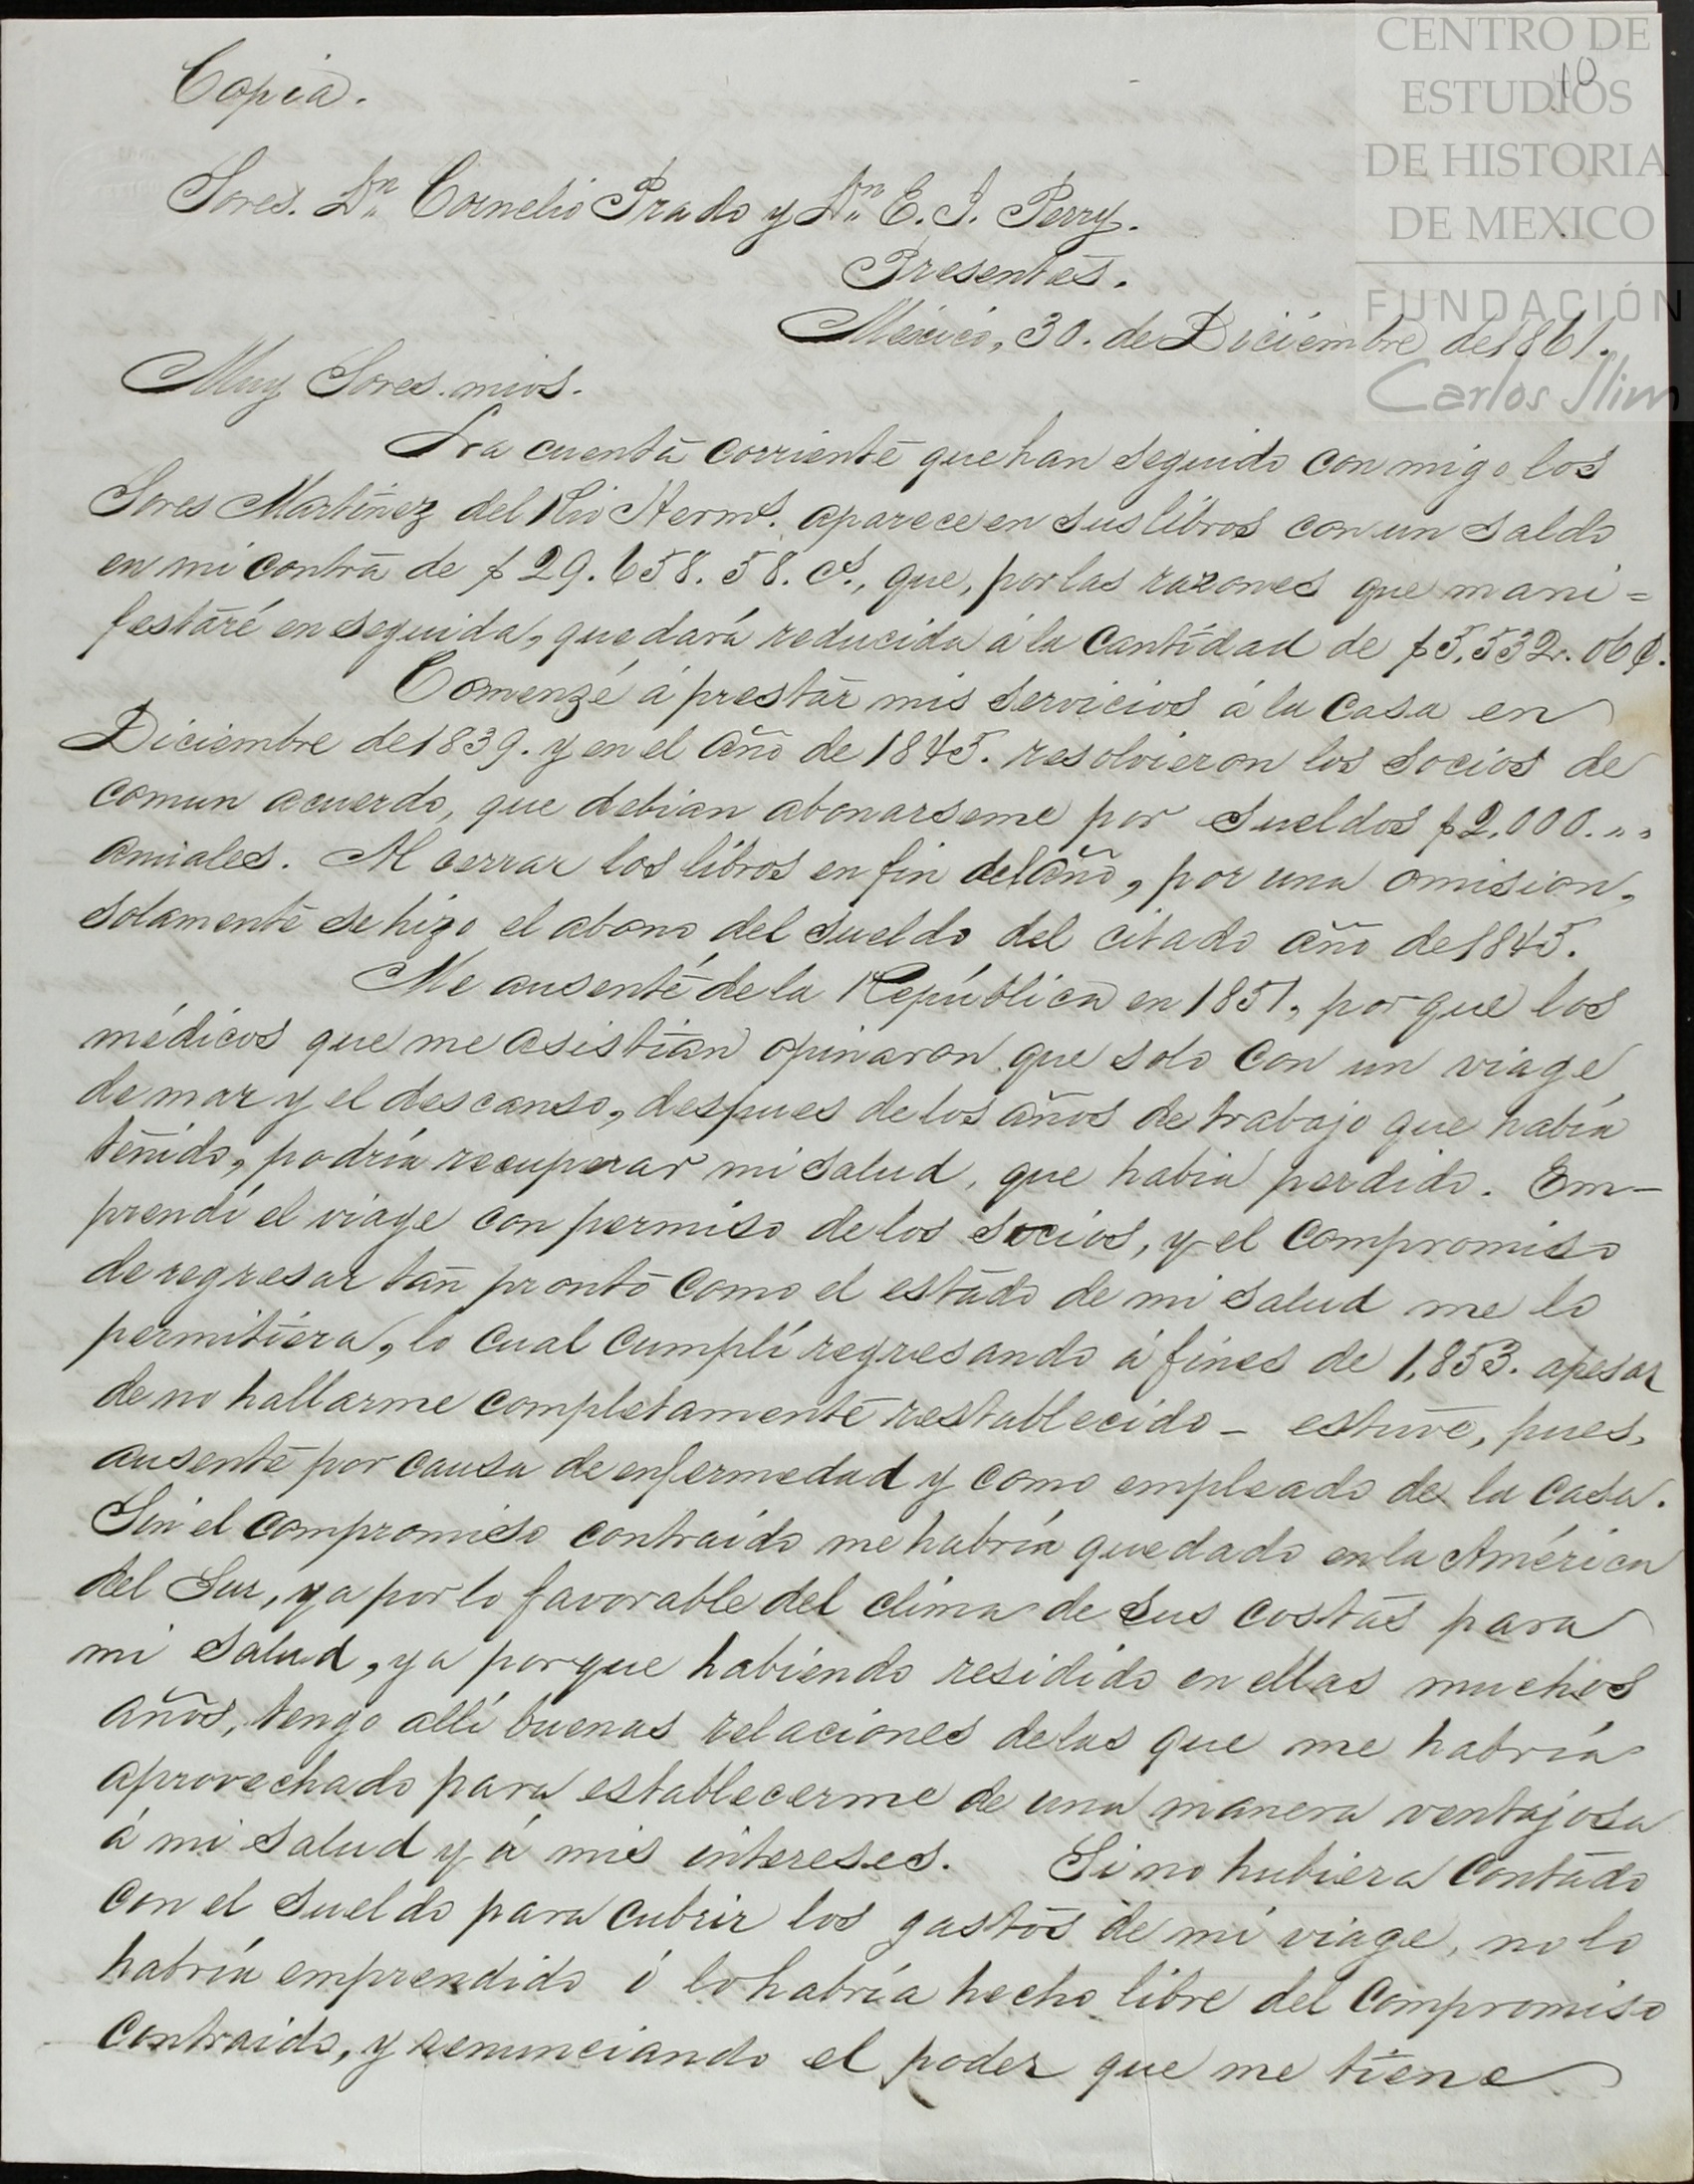 CENTRO DE
ESTUDIOS
DE HISTORIA
DE MEXICO
FUNDACIÓN
Carlos Slim
10
Copia.
Sores. Dn. Cornelio Prado y Dn. E. J. Perry.
Presentes.
México, 30. de Diciembre de 1861.
Muy Sores. mios.
La cuenta corriente que han seguido con migo los
Sores Martinez del Rio Herms. aparece en sus libros con un saldo
en mi contra de $ 29.658.58. cs., que, por las razones que mani=
festaré en seguida, quedará reducida á la cantidad de $5,532. 06 ¢.
Comenzé á prestar mis servicios á la casa en
Diciembre de 1839. y en el año de 1845. resolvieron los socios de
comun acuerdo, que debian abonarseme por sueldos $2,000. „ „
anuales. Al cerrar los libros en fin del año, por una omision,
solamente se hizo el abono del sueldo del citado año de 1845.
Me ausenté de la República en 1851, porque los
médicos que me asistian opinaron que solo con un viage
de mar y el descanso, despues de los años de trabajo que habia
tenido, podría recuperar mi salud, que habia perdido. Em-
prendí el viage con permiso de los socios, y el compromiso
de regresar tan pronto como el estado de mi salud me lo
permitiera, lo cual cumplí regresando á fines de 1,853. apesar
de no hallarme completamente restablecido - estuve, pues,
ausente por causa de enfermedad y como empleado de la casa.
Sin el compromiso contraido me habría quedado en la América
del Sur, ya por lo favorable del clima de sus costas para
mi salud, ya porque habiendo residido en ellas muchos
años, tengo allí buenas relaciones de las que me habría
aprovechado para establecerme de una manera ventajosa
á mi salud y á mis intereses. Si no hubiera contado
con el sueldo para cubrir los gastos de mi viage, no lo
habría emprendido ó lo habría hecho libre del compromiso
contraido, y renunciando el poder que me tiene